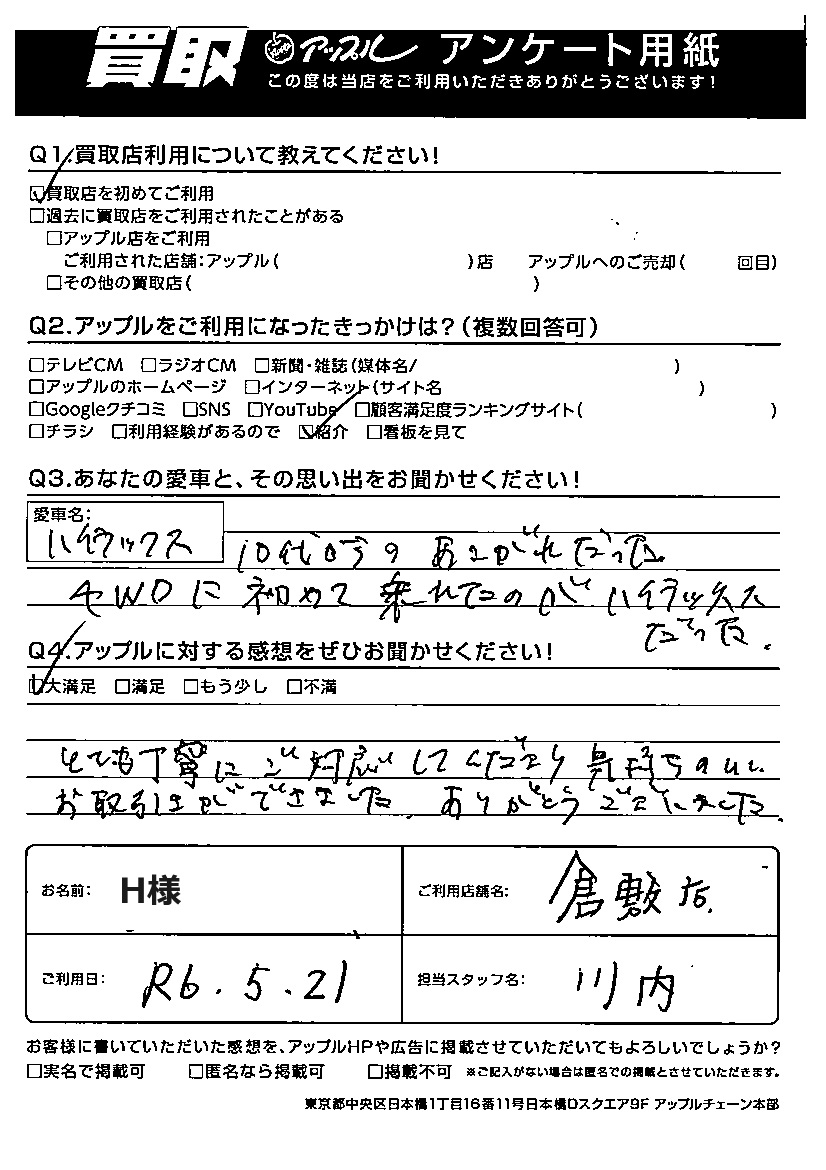 買取 アップル アンケート用紙
この度は当店をご利用いただきありがとうございます!
Q1.買取店利用について教えてください!
☑買取店を初めてご利用
□過去に買取店をご利用されたことがある
□アップル店をご利用
ご利用された店舗:アップル( )店 アップルへのご売却( 回目)
□その他の買取店( )
Q2.アップルをご利用になったきっかけは?(複数回答可)
□テレビCM □ラジオCM □新聞・雑誌(媒体名/ )
□アップルのホームページ □インターネット(サイト名 )
□Googleクチコミ □SNS □YouTube □顧客満足度ランキングサイト( )
□チラシ □利用経験があるので ☑紹介 □看板を見て
Q3.あなたの愛車と、その思い出をお聞かせください!
愛車名:
ハイラックス 10代からの あこがれだった。
4WDに 初めて 乗れたのが ハイラックス
だった.
Q4.アップルに対する感想をぜひお聞かせください!
☑大満足 □満足 □もう少し □不満
とても丁寧に ご対応してくださり 気持ちのいい
お取引きができました. ありがとうございました.
お名前: H様 ご利用店舗名: 倉敷店.
ご利用日: R6.5.21 担当スタッフ名: 川内
お客様に書いていただいた感想を、アップルHPや広告に掲載させていただいてもよろしいでしょうか?
□実名で掲載可 □匿名なら掲載可 □掲載不可 ※ご記入がない場合は匿名での掲載とさせていただきます。
東京都中央区日本橋1丁目16番11号日本橋Dスクエア9F アップルチェーン本部